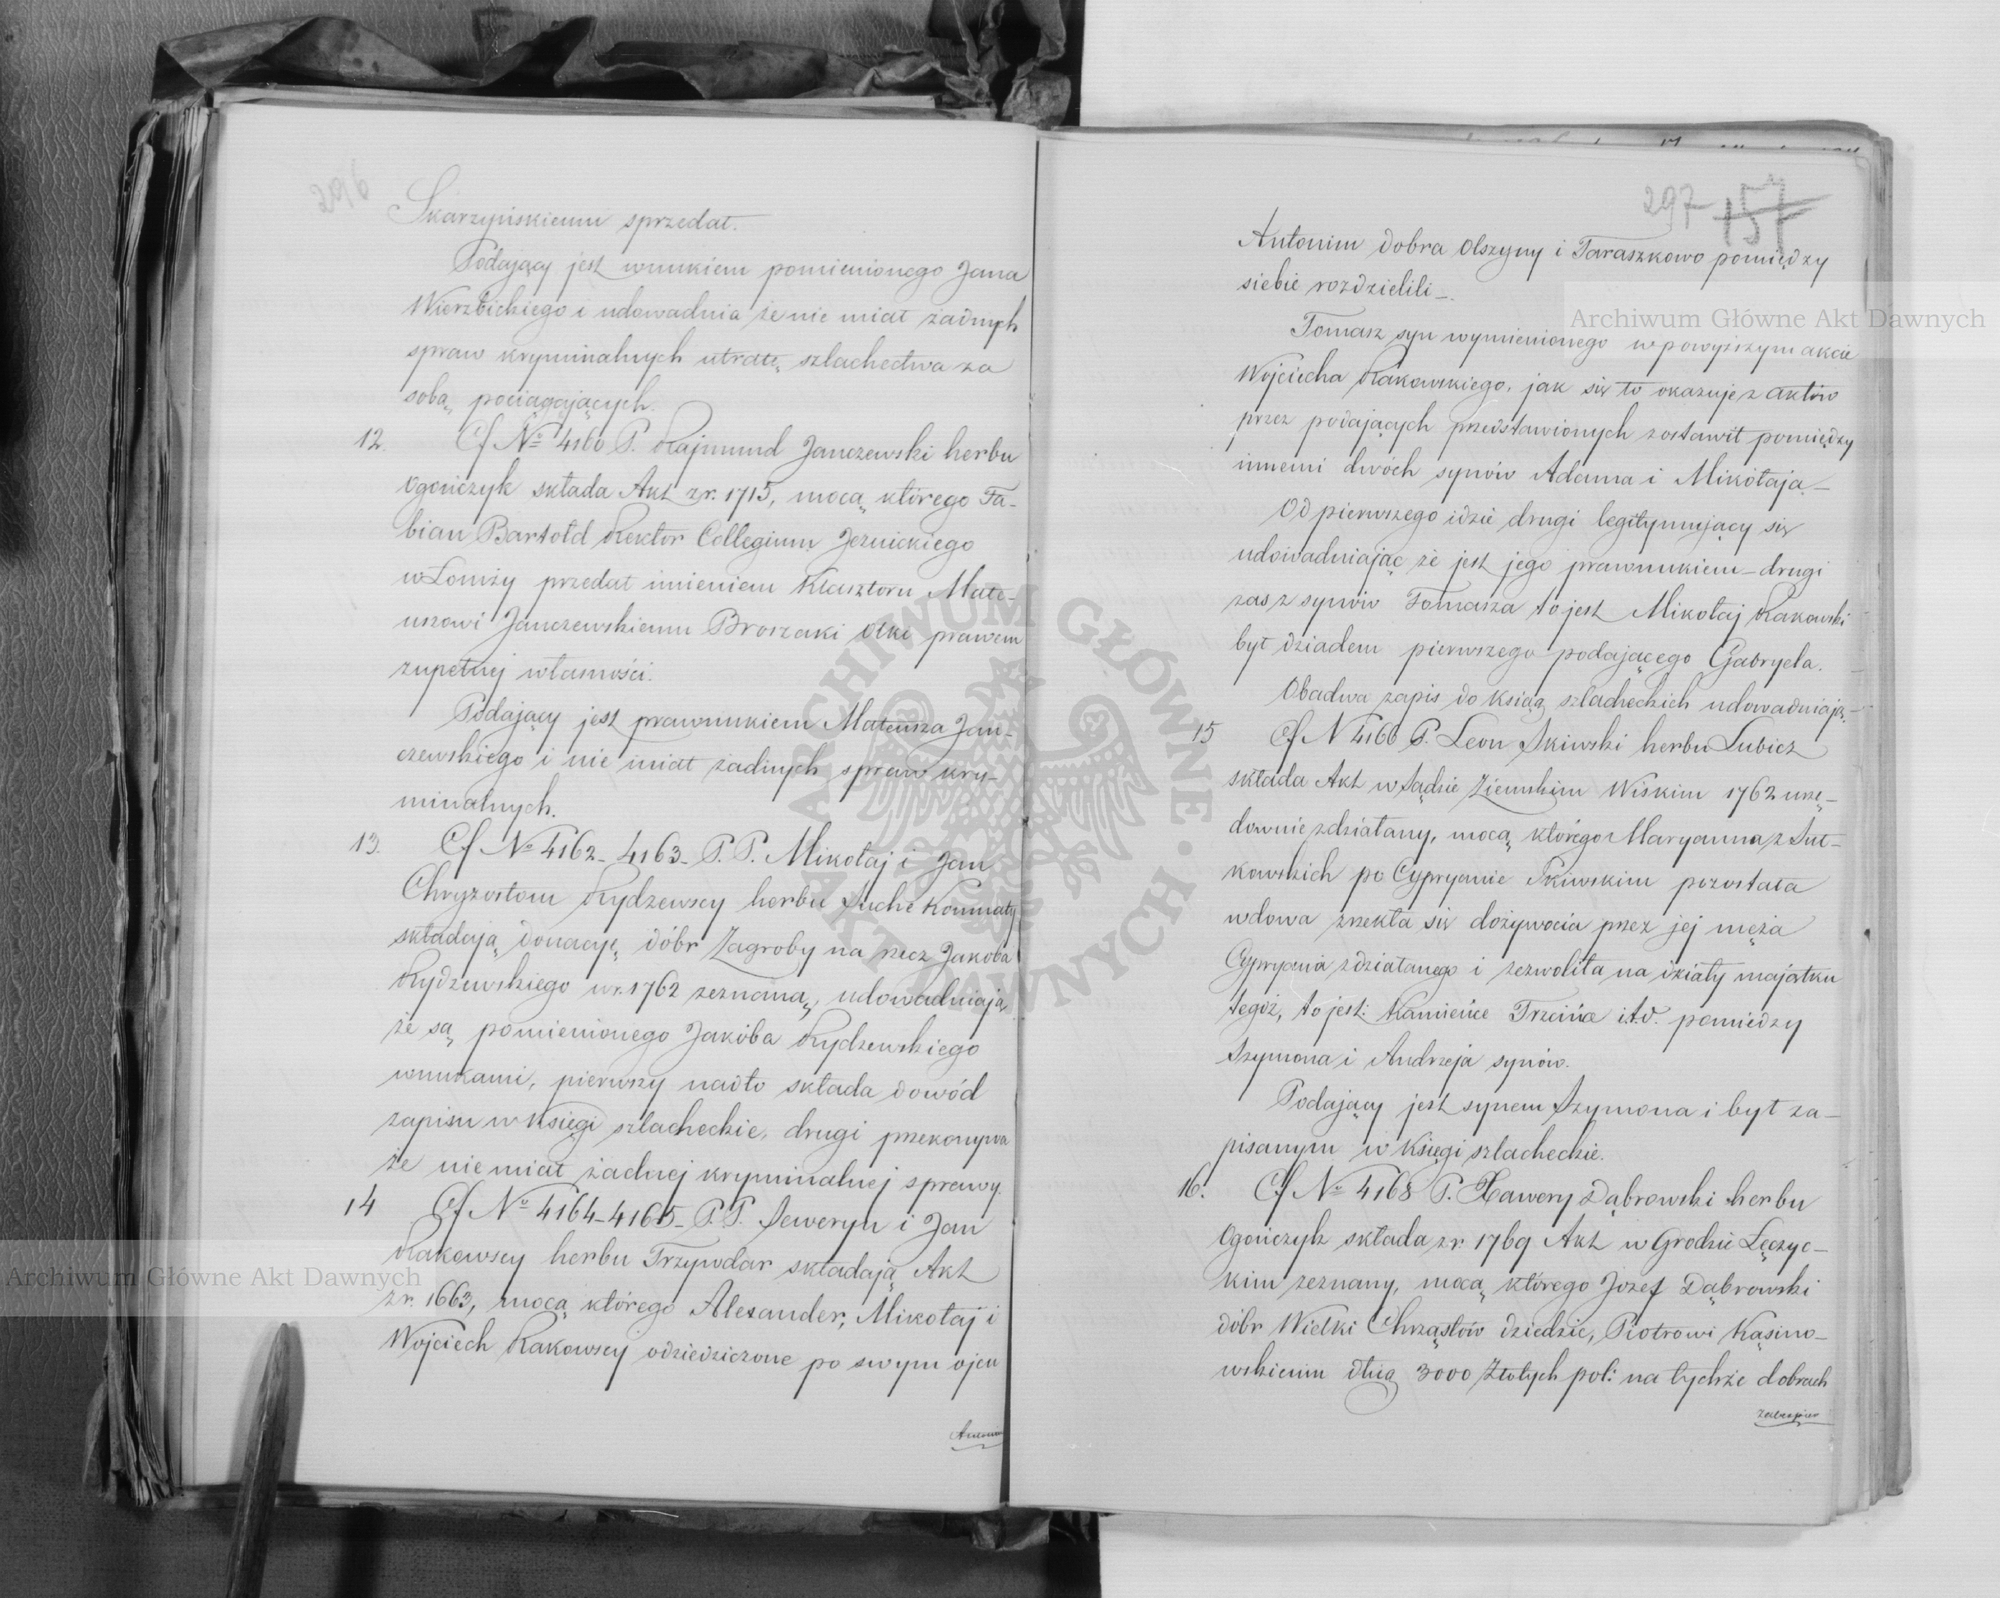 296
Skarzyńskiemu sprzedał.
Podający jest wnukiem pomienionego Jana
Wierzbickiego i udowadnia że nie miał żadnych
spraw kryminalnych utratę szlachectwa za
sobą pociągających.
12. Cf No 4160 P. Rajmund Janczewski herbu
Ogończyk składa Akt z r. 1715, mocą którego Fa-
bian Bartold Rektor Collegium Jezuickiego
w Łomży przedał imieniem Klasztoru Mate-
uszowi Janczewskiemu prawem
zupełnej własności.
Podający jest prawnukiem Mateusza Jan-
czewskiego i nie miał żadnych spraw kry-
minalnych.
13. Cf No 4162-4163- P.P. Mikołaj i Jan
Chryzostom Rydzewscy herbu Suche Komnaty
składają donacyę dóbr Zagroby na rzecz Jakóba
Rydzewskiego w r. 1762 zeznaną, udowadniają,
że są pomienionego Jakóba Rydzewskiego
wnukami, pierwszy nadto składa dowód
zapisu w Księgi szlacheckie, drugi przekonywa
że nie miał żadnej kryminalnej sprawy.
14 Cf No 4164-4165- P.P. Seweryn i Jan
Rakowscy herbu Trzywdar składają Akt
z r. 1663, mocą którego Alexander, Mikołaj i
Wojciech Rakowscy odziedziczone po swym ojcu
297 157
Antonim dobra Olszyny i Taraszkowo pomiędzy
siebie rozdzielili-.
Tomasz syn wymienionego w powyższym akcie
Wojciecha Rakowskiego, jak się to okazuje z aktów
przez podających przedstawionych zostawił pomiędzy
innemi dwóch synów Adama i Mikołaja-
Od pierwszego idzie drugi legitymujący się
udowadniając że jest jego prawnukiem - drugi
zas z synów Tomasza to jest Mikołaj Rakowski
był dziadem pierwszego podającego Gabryela.
Obadwa zapis do ksiąg szlacheckich udowadniają.-
15 Cf N 4166 P. Leon Skiwski herbu Lubicz
składa Akt w Sądzie Ziemskim Wiskim 1762 urzę-
downie zdziałany, mocą którego Maryanna z Sut-
kowskich po Cypryanie Skiwskim pozostała
wdowa zrzekła się dożywocia przez jej męża
Cypryana zdziałanego i zezwoliła na działy majątku
tegoż, to jest: Kamieńce Trzcińce i t.d. pomiedzy
Szymona i Andrzeja synów.
Podający jest synem Szymona i był za-
pisanym w Księgi szlacheckie.
16. Cf No 4168 P. Xawery Dąbrowski herbu
Ogończyk składa z r. 1769 Akt w Grodzie Łęczyc-
kim zeznany, mocą którego Józef Dąbrowski
dóbr Wielki Chrząstów dziedzic, Piotrowi
dług 3000 Złotych pol: na tychże dobrach
Archiwum Główne Akt Dawnych
Archiwum Główne Akt Dawnych
ARCHIWUM GŁÓWNE AKT DAWNYCH